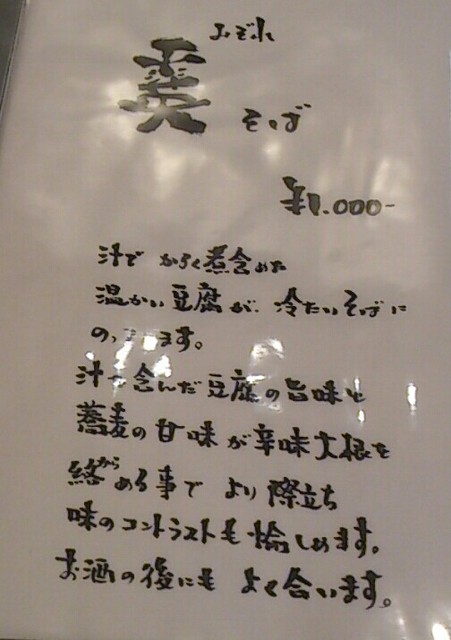 みぞれ
霙
そば
¥1.000-
汁でかるく煮含めた
温かい豆腐が、冷たいそばに
のっています。
汁を含んだ豆腐の旨味と
蕎麦の甘味が辛味大根を
絡からめる事でより際立ち
味のコントラストも愉しめます。
お酒の後にもよく合います。